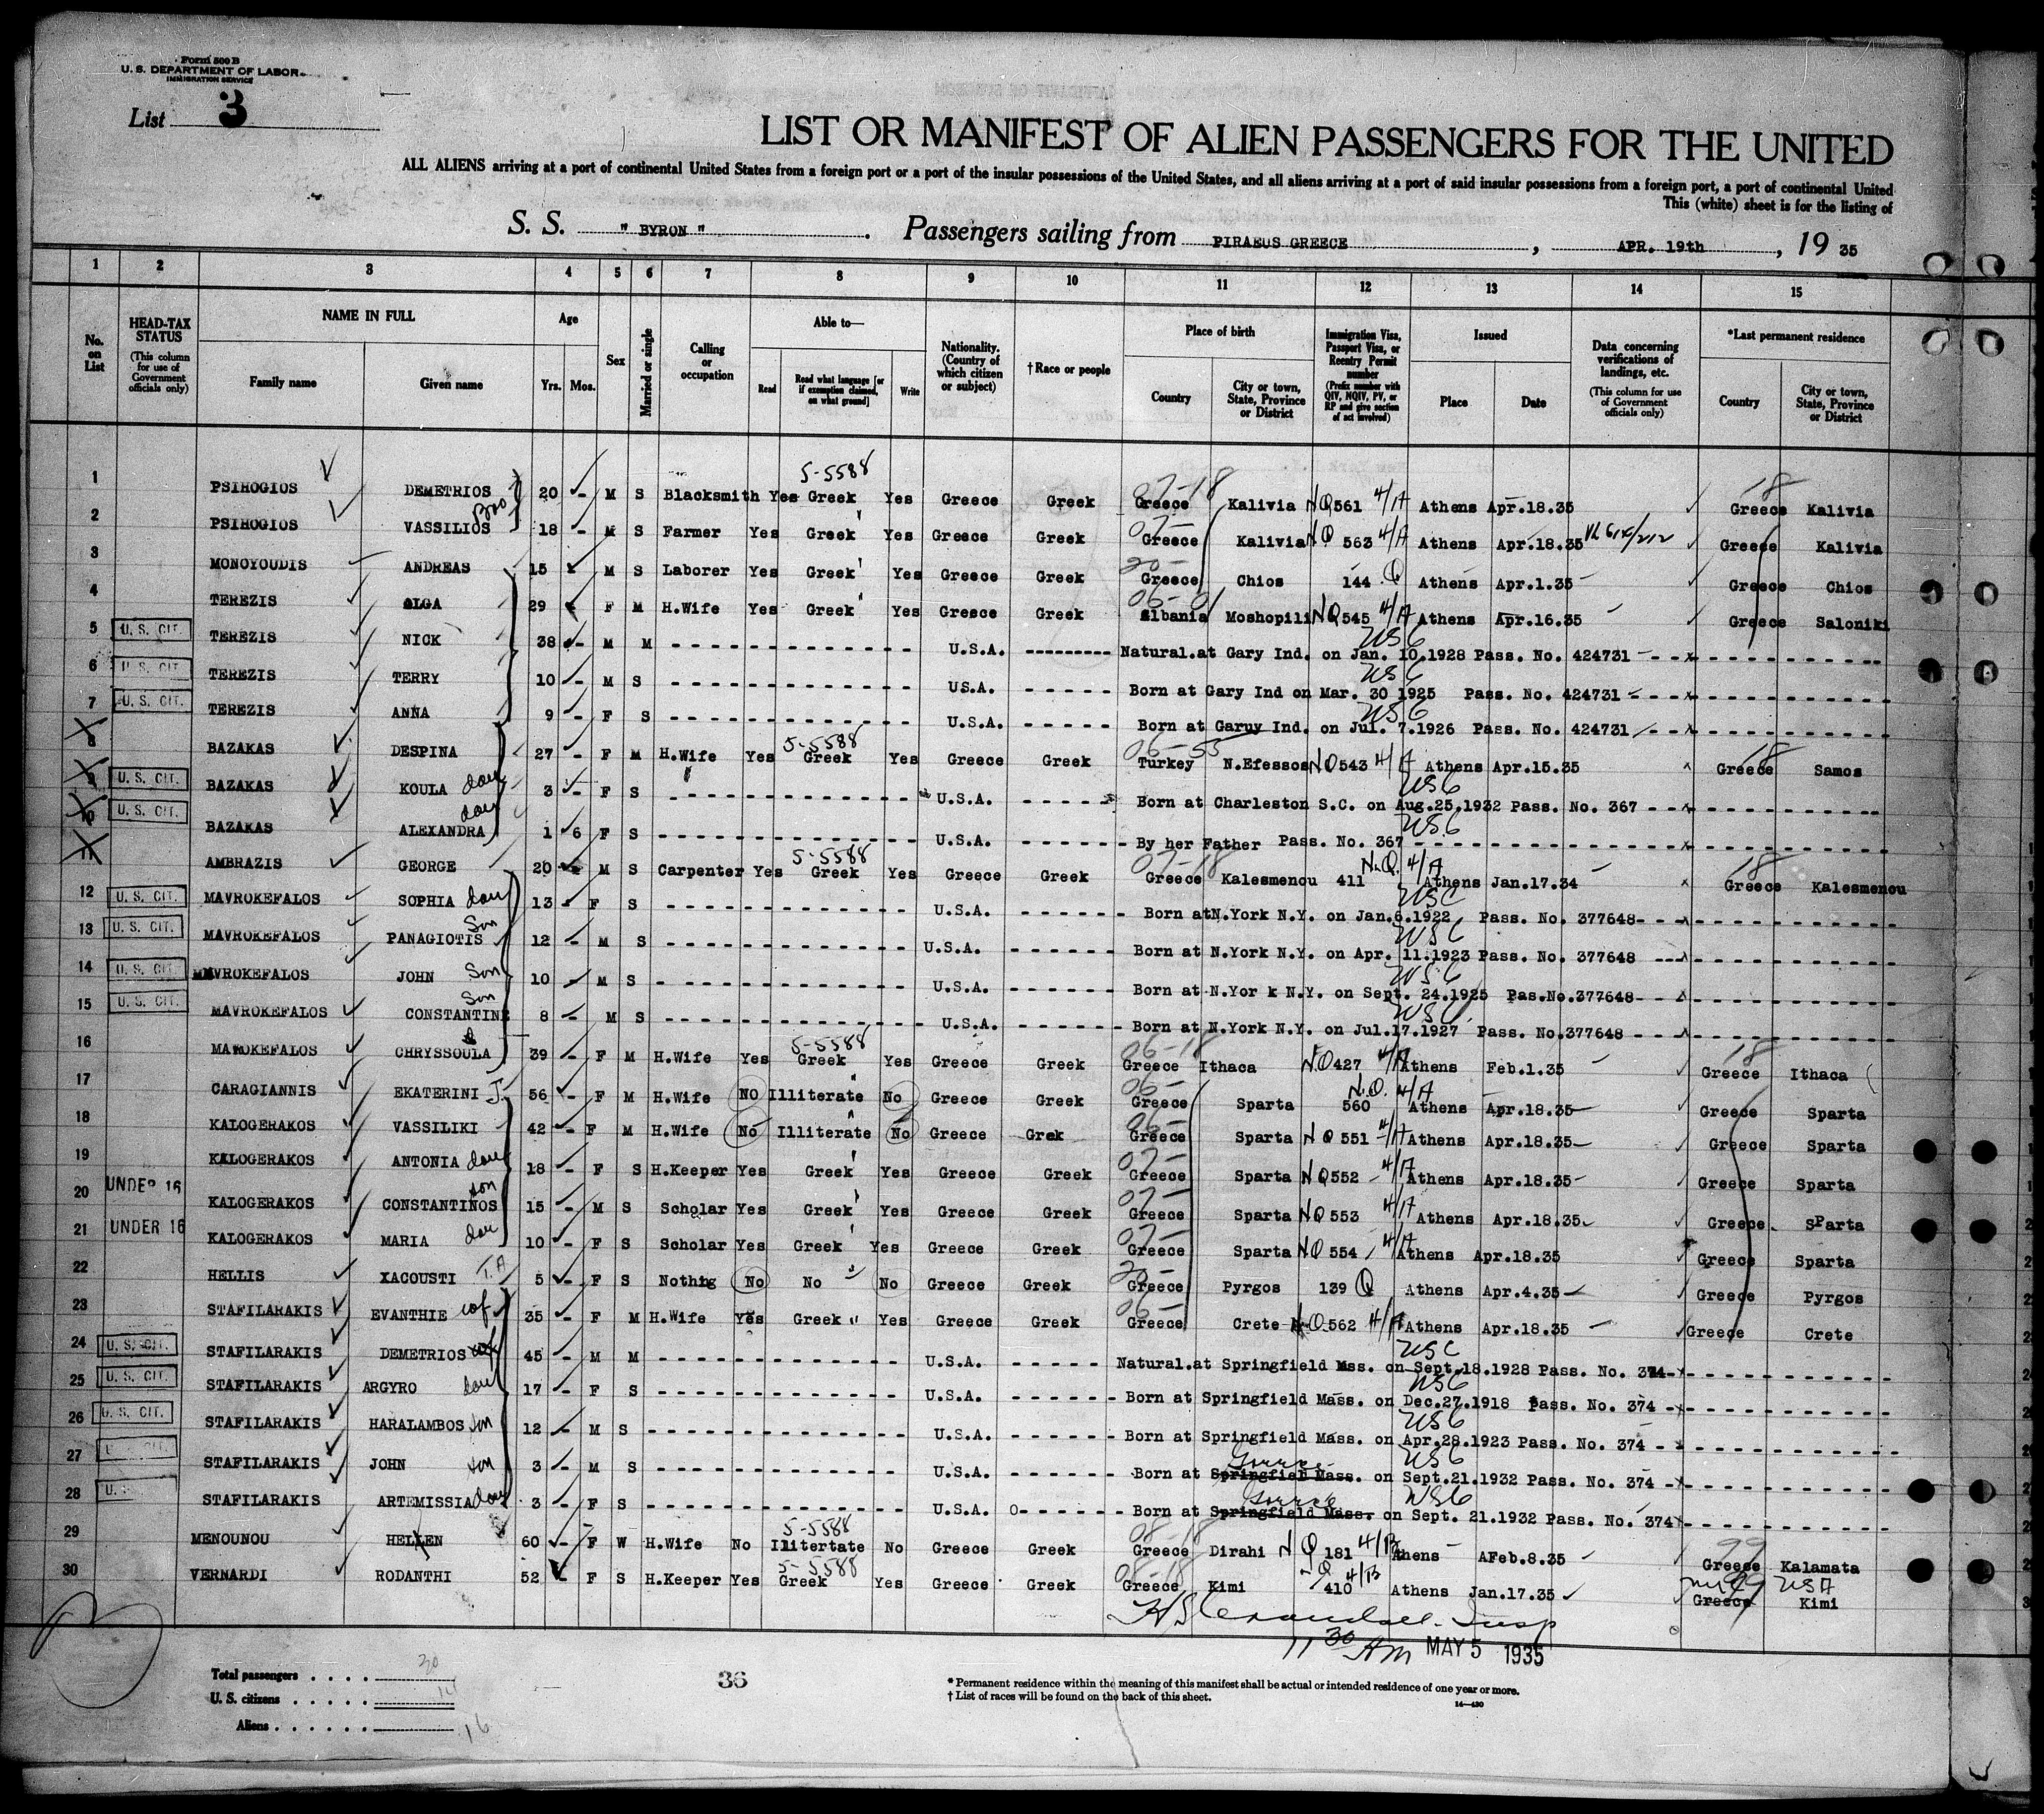 Form 500 B
U. S. DEPARTMENT OF LABOR
IMMIGRATION SERVICE
List 3
LIST OR MANIFEST OF ALIEN PASSENGERS FOR THE UNITED
ALL ALIENS arriving at a port of continental United States from a foreign port or a port of the insular possessions of the United States, and all aliens arriving at a port of said insular possessions from a foreign port, a port of continental United
This (white) sheet is for the listing of
S. S. " BYRON ". Passengers sailing from PIRAEUS GREECE, APR. 19th, 19 35
1 2 3 4 5 6 7 8 9 10 11 12 13 14 15
No. on List
HEAD-TAX STATUS (This column for use of Government officials only)
NAME IN FULL
Family name Given name
Age
Yrs. Mos.
Sex
Married or single
Calling or occupation
Able to—
Read Read what language [or if exemption claimed, on what ground] Write
Nationality. (Country of which citizen or subject)
†Race or people
Place of birth
Country City or town, State, Province or District
Immigration Visa, Passport Visa, or Reentry Permit number (Prefix number with QIV, NQIV, PV, or RP and give section of act involved)
Issued
Place Date
Data concerning verifications of landings, etc. (This column for use of Government officials only)
*Last permanent residence
Country City or town, State, Province or District
1 PSIHOGIOS DEMETRIOS 20 - M S Blacksmith Yes 5-5588 Greek Yes Greece Greek 07-18 Greece Kalivia NQ 561 4/A Athens Apr.18.35 18 Greece Kalivia
2 PSIHOGIOS VASSILIOS Bro 18 - M S Farmer Yes Greek Yes Greece Greek 07- Greece Kalivia NQ 563 4/A Athens Apr.18.35 Greece Kalivia
3 MONOYOUDIS ANDREAS 15 M S Laborer Yes Greek Yes Greece Greek 20- Greece Chios 144 Q Athens Apr.1.35 Greece Chios
4 TEREZIS OLGA 29 F M H.Wife Yes Greek Yes Greece Greek 06-01 Albania Moshopili NQ 545 4/A Athens Apr.16.35 Greece Saloniki
5 U. S. CIT. TEREZIS NICK 38 - M M U.S.A. Natural.at Gary Ind. on Jan. 10.1928 Pass. No. 424731 USC
6 U. S. CIT. TEREZIS TERRY 10 - M S U.S.A. Born at Gary Ind on Mar. 30 1925 Pass. No. 424731 USC
7 U. S. CIT. TEREZIS ANNA 9 - F S U.S.A. Born at Garuy Ind. on Jul. 7.1926 Pass. No. 424731 USC
8 BAZAKAS DESPINA 27 - F M H.Wife Yes 5-5588 Greek Yes Greece Greek 06-53 Turkey N.Efessos NQ 543 4/A Athens Apr.15.35 18 Greece Samos
9 U. S. CIT. BAZAKAS KOULA dau 3 - F S U.S.A. Born at Charleston S.C. on Aug.25.1932 Pass. No. 367 USC
10 U. S. CIT. BAZAKAS ALEXANDRA dau 1 6 F S U.S.A. By her Father Pass. No. 367 USC
11 AMBRAZIS GEORGE 20 M S Carpenter Yes 5-5588 Greek Yes Greece Greek 07-18 Greece Kalesmenou 411 N.Q. 4/A Athens Jan.17.34 18 Greece Kalesmenou
12 U. S. CIT. MAVROKEFALOS SOPHIA dau 13 - F S U.S.A. Born atN.York N.Y. on Jan.6.1922 Pass. No. 377648 USC
13 U. S. CIT. MAVROKEFALOS PANAGIOTIS Son 12 - M S U.S.A. Born at N.York N.Y. on Apr. 11.1923 Pass. No. 377648 USC
14 U. S. CIT. MAVROKEFALOS JOHN Son 10 - M S U.S.A. Born at N.Yor k N.Y. on Sept. 24.1925 Pas.No.377648 USC
15 U. S. CIT. MAVROKEFALOS CONSTANTINE Son 8 - M S U.S.A. Born at N.York N.Y. on Jul.17.1927 Pass. No.377648 USC
16 MAVROKEFALOS CHRYSSOULA 39 - F M H.Wife Yes 5-5588 Greek Yes Greece Greek 06-18 Greece Ithaca NQ 427 4/A Athens Feb.1.35 18 Greece Ithaca
17 CARAGIANNIS EKATERINI J. 56 - F M H.Wife NO Illiterate No Greece Greek 06- Greece Sparta 560 N.Q. 4/A Athens Apr.18.35 Greece Sparta
18 KALOGERAKOS VASSILIKI 42 - F M H.Wife No Illiterate No Greece Grek 06- Greece Sparta NQ 551 4/A Athens Apr.18.35 Greece Sparta
19 KALOGERAKOS ANTONIA dau 18 - F S H.Keeper Yes Greek Yes Greece Greek 07- Greece Sparta NQ 552 4/A Athens Apr.18.35 Greece Sparta
20 UNDER 16 KALOGERAKOS CONSTANTINOS son 15 - M S Scholar Yes Greek Yes Greece Greek 07- Greece Sparta NQ 553 4/A Athens Apr.18.35 Greece SParta
21 UNDER 16 KALOGERAKOS MARIA dau 10 - F S Scholar Yes Greek Yes Greece Greek 07- Greece Sparta NQ 554 4/A Athens Apr.18.35 Greece Sparta
22 HELLIS XACOUSTI T.A 5 - F S Nothing No No No Greece Greek 20- Greece Pyrgos 139 Q Athens Apr.4.35 Greece Pyrgos
23 STAFILARAKIS EVANTHIE wf 35 - F M H.Wife Yes Greek Yes Greece Greek 06- Greece Crete NQ 562 4/A Athens Apr.18.35 Greece Crete
24 U. S. CIT. STAFILARAKIS DEMETRIOS 45 - M M U.S.A. Natural.at Springfield Mss. on Sept.18.1928 Pass. No. 374 USC
25 U. S. CIT. STAFILARAKIS ARGYRO dau 17 - F S U.S.A. Born at Springfield Mass. on Dec.27.1918 Pass. No. 374 USC
26 U. S. CIT. STAFILARAKIS HARALAMBOS son 12 - M S U.S.A. Born at Springfield Mass. on Apr.28.1923 Pass. No. 374 USC
27 STAFILARAKIS JOHN son 3 - M S U.S.A. Born at Springfiel Mass. Greece on Sept.21.1932 Pass. No. 374 USC
28 U. S. STAFILARAKIS ARTEMISSIA dau 3 - F S U.S.A. Born at Springfield Mass. Greece on Sept. 21.1932 Pass. No. 374 USC
29 MENOUNOU HELLEN 60 - F W H.Wife No 5-5588 Ilitertate No Greece Greek 08-18 Greece Dirahi NQ 181 4/B Athens AFeb.8.35 99 Greese Kalamata
30 VERNARDI RODANTHI 52 - F S H.Keeper Yes 5-5588 Greek Yes Greece Greek 08-18 Greece Kimi 410 4/B Athens Jan.17.35 99 USA Greece Kimi
H S Crandall. Insp
11 30 AM MAY 5 1935
Total passengers . . . . 30
U. S. citizens . . . . . 14
Aliens . . . . . . 16
36
* Permanent residence within the meaning of this manifest shall be actual or intended residence of one year or more.
† List of races will be found on the back of this sheet.
14—430